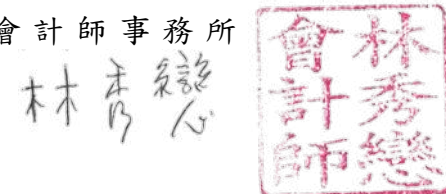 會計師事務所
林秀戀
林秀戀
會計師